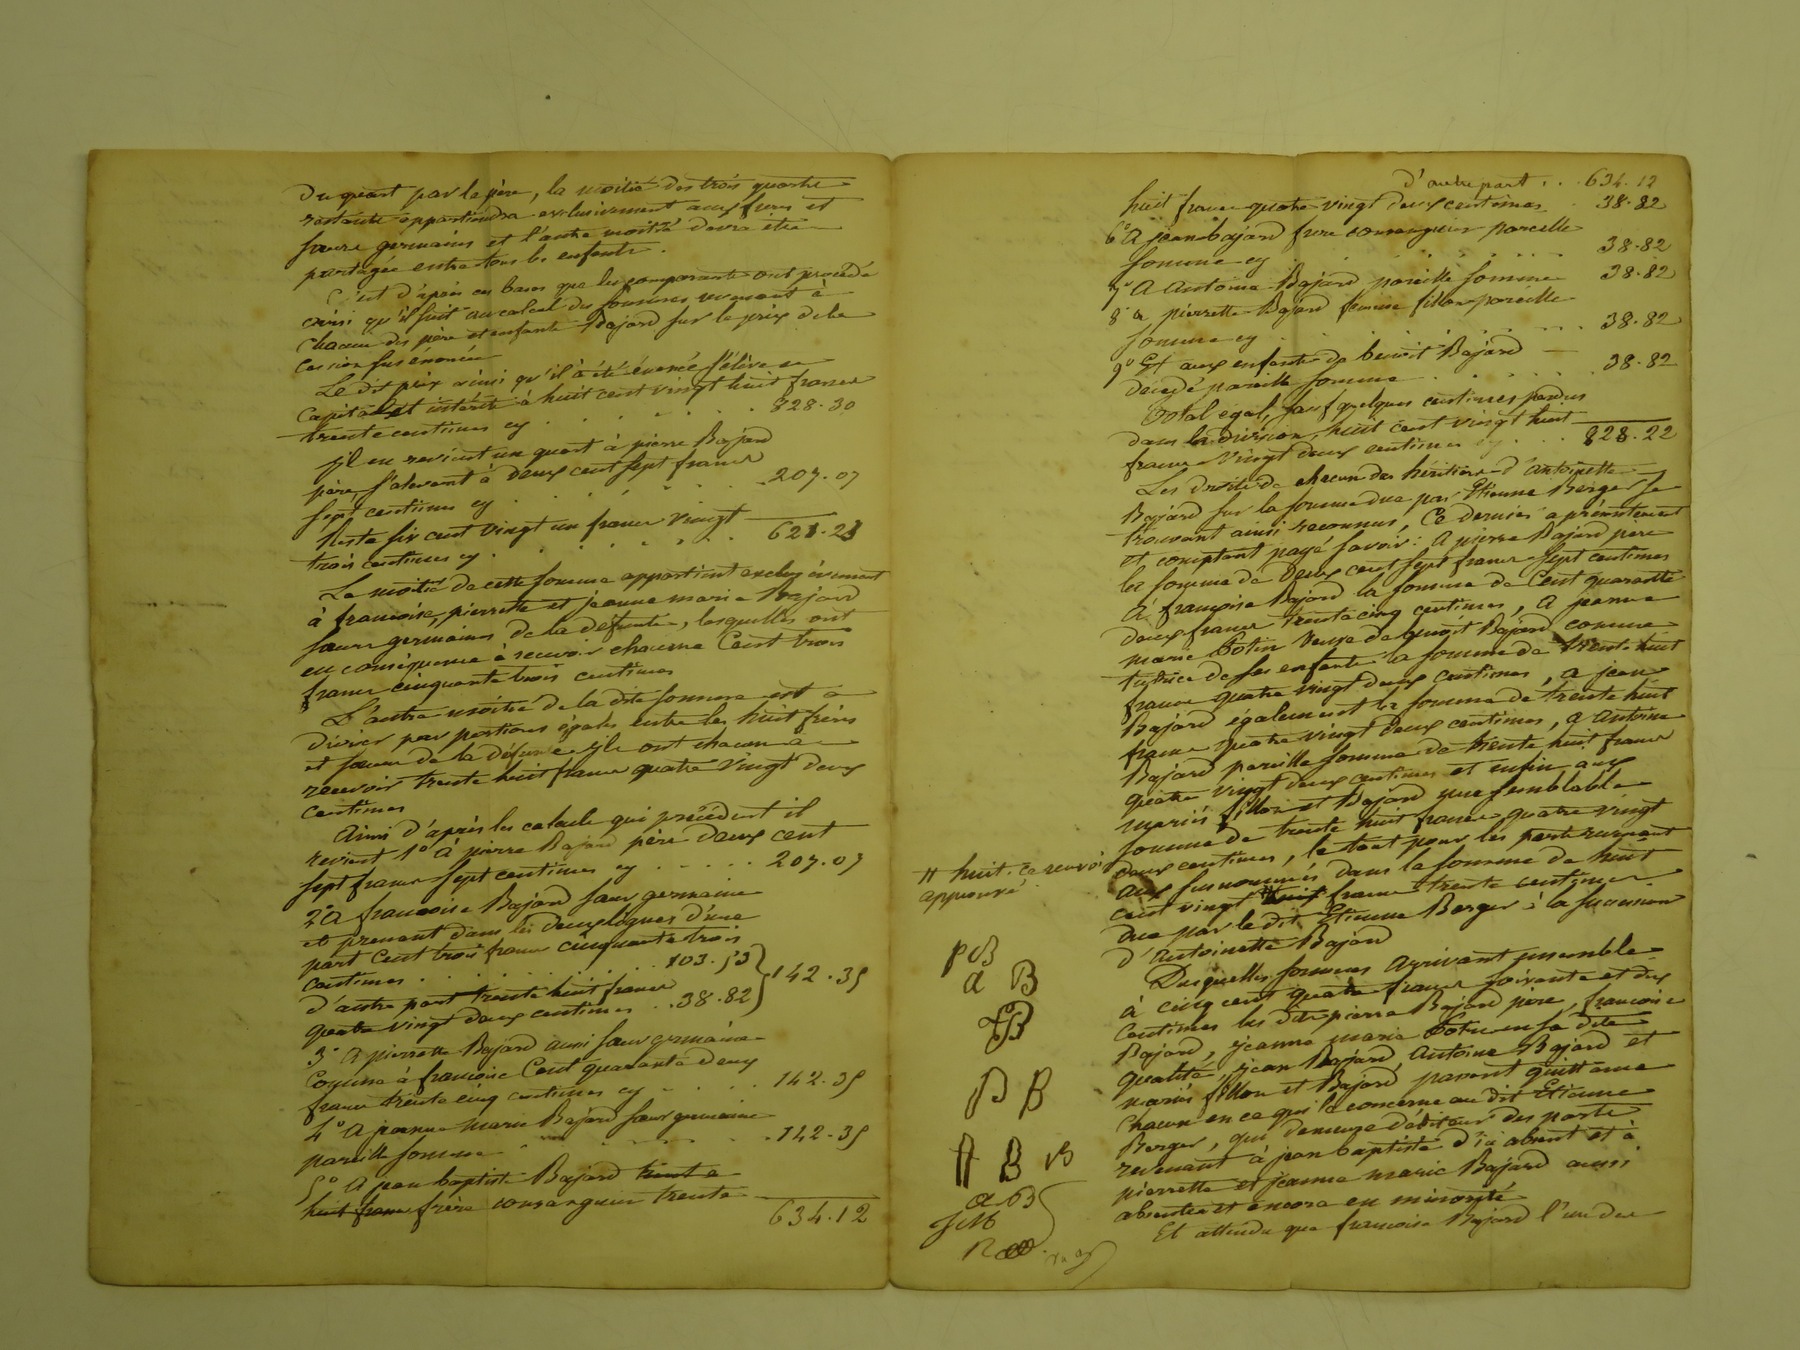 du quart par le père, la moitié des trois quarts
restants appartiendra exclusivement aux frères et
sœurs germains et l'autre moitié devra être
partagée entre tous les enfants.
C'est d'après ces bases que les comparants ont procédé
ainsi qu'il suit au calcul des sommes revenant à
chacun des père et enfants Bajard sur le prix de la
cession sus énoncée
Le dit prix ainsi qu'il a été énoncé s'élève en
capital et intérêts à huit cent vingt huit francs
trente centimes cy . . . . . . 828.30
Il en revient un quart à pierre Bajard
père, s'elevant à deux cent sept francs
sept centimes cy . . . . . . 207.07
Reste six cent vingt un francs vingt
trois centimes cy . . . . . . 621.23
La moitié de cette somme appartient exclusivement
à francoise, pierrette et jeanne marie Bajard
sœurs germaines de la defunte, lesquelles ont
en conséquence à recevoir chacune Cent trois
francs cinquante trois centimes
L'autre moitié de la dite somme est à
diviser par portions égales entre les huit frères
et sœurs de la défunte ils ont chacun à
recevoir trente huit francs quatre vingt deux
centimes
Ainsi d'après les calculs qui précèdent il
revient 1° à pierre Bajard père deux cent
sept francs sept centimes cy . . . . . 207.07
2° A francoise Bajard sœur germaine
et prenant dans les deux lignes d'une
part Cent trois francs cinquante trois
centimes . . . . . . . 103.53
d'autre part trente huit francs 142.35
quatre vingt deux centimes . . 38.82
3° A pierrette Bajard aussi sœur germaine
Comme à francoise Cent quarante deux
francs trente cinq centimes cy . . . . 142.35
4° A jeanne Marie Bajard sœur germaine
pareille somme . . . . . . 142.35
5° A jean baptiste Bajard trente
huit francs frère consanguin trente
634.12
d'autre part . . . 634.12
huit francs quatre vingt deux centimes . 38.82
6° A jean bajard frere consanguin pareille
somme cy . . . . . . 38.82
7° A Antoine Bajard pareille somme 38.82
8° A pierrette Bajard femme fillon pareille
somme cy . . . . . . 38.82
9° Et aux enfants de benoit Bajard
decedé pareille somme . . . . . . 38.82
Total égal, sauf quelques centimes perdus
dans la division, huit cent vingt huit
francs vingt deux centimes cy . . . . 828.22
Les droits de chacun des héritiers d'antoinette
Bajard sur la somme due par Etienne Berger se
trouvant ainsi reconnus, Ce dernier a présentement
et comptant payé savoir: A pierre Bajard père
la somme de deux cent sept francs sept centimes
A françoise Bajard la somme de Cent quarante
deux francs trente cinq centimes, A jeanne
marie Cotin veuve de benoit Bajard comme
tutrice de ses enfants la somme de trente huit
francs quatre vingt deux centimes, a jean
Bajard également la somme de trente huit
francs quatre vingt deux centimes, a Antoine
Bajard pareille somme de trente huit francs
quatre vingt deux centimes et enfin aux
mariés fillon et Bajard une semblable
somme de trente huit francs quatre vingt
deux centimes, le tout pour les parts revenant
aux susnommés dans la somme de huit
cent vingt huit francs trente centimes
due par le dit Etienne Berger à la succession
d'Antoinette Bajard
H huit. ce renvoi
approuvé
Desquelles sommes arrivant ensemble
à cinq cent quatre francs soixante et dix
centimes les dits pierre Bajard père, francoise
Bajard, jeanne marie Cotin en sa dite
qualité, jean Bajard, Antoine Bajard et
mariés fillon et Bajard passent quittance
chacun en ce qui le concerne au dit Etienne
Berger, qui demeure débiteur des parts
revenant à jean baptiste dia absent et à
pierrette et jeanne marie Bajard aussi
absentes et encore en minorité
Et attendu que francoise Bajard l'une des
P B
a B
B
B B
A B B
a B